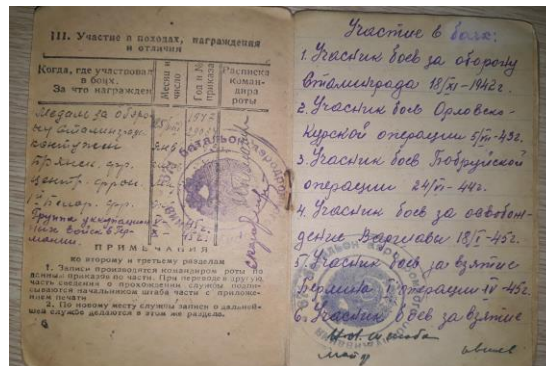 III. Участие в походах, награждения
и отличия
Когда, где участвовал
в боях.
За что награжден
Месяц и
число
Год и №
приказа
Расписка
коман-
дира
роты
Медаль за оборо-
ну Сталинграда
центр. фрон.
1й Белор. фр.
Группа
ных войск в Гер-
мании.
ПРИМЕЧАНИЯ
ко второму и третьему разделам
1. Записи производятся командиром роты по
данным приказов по части. При переводе в другую
часть сведения о прохождении службы подпи-
сываются начальником штаба части с приложе-
нием печати
2. По новому месту службы записи о дальней-
шей службе делаются в этом же разделе.
Участие в боях:
1. Участник боев за оборону
Сталинграда 18/XI-1942г.
2. Участник боев Орловско-
Курской операции 5/VII-43г.
3. Участник боев Бобруйской
операции 24/VI-44г.
4. Участник боев за освобож-
дение Варшавы 18/I-45г.
5. Участник боев за взятие
Берлина операции IV-45г.
6. Участник боев за взятие